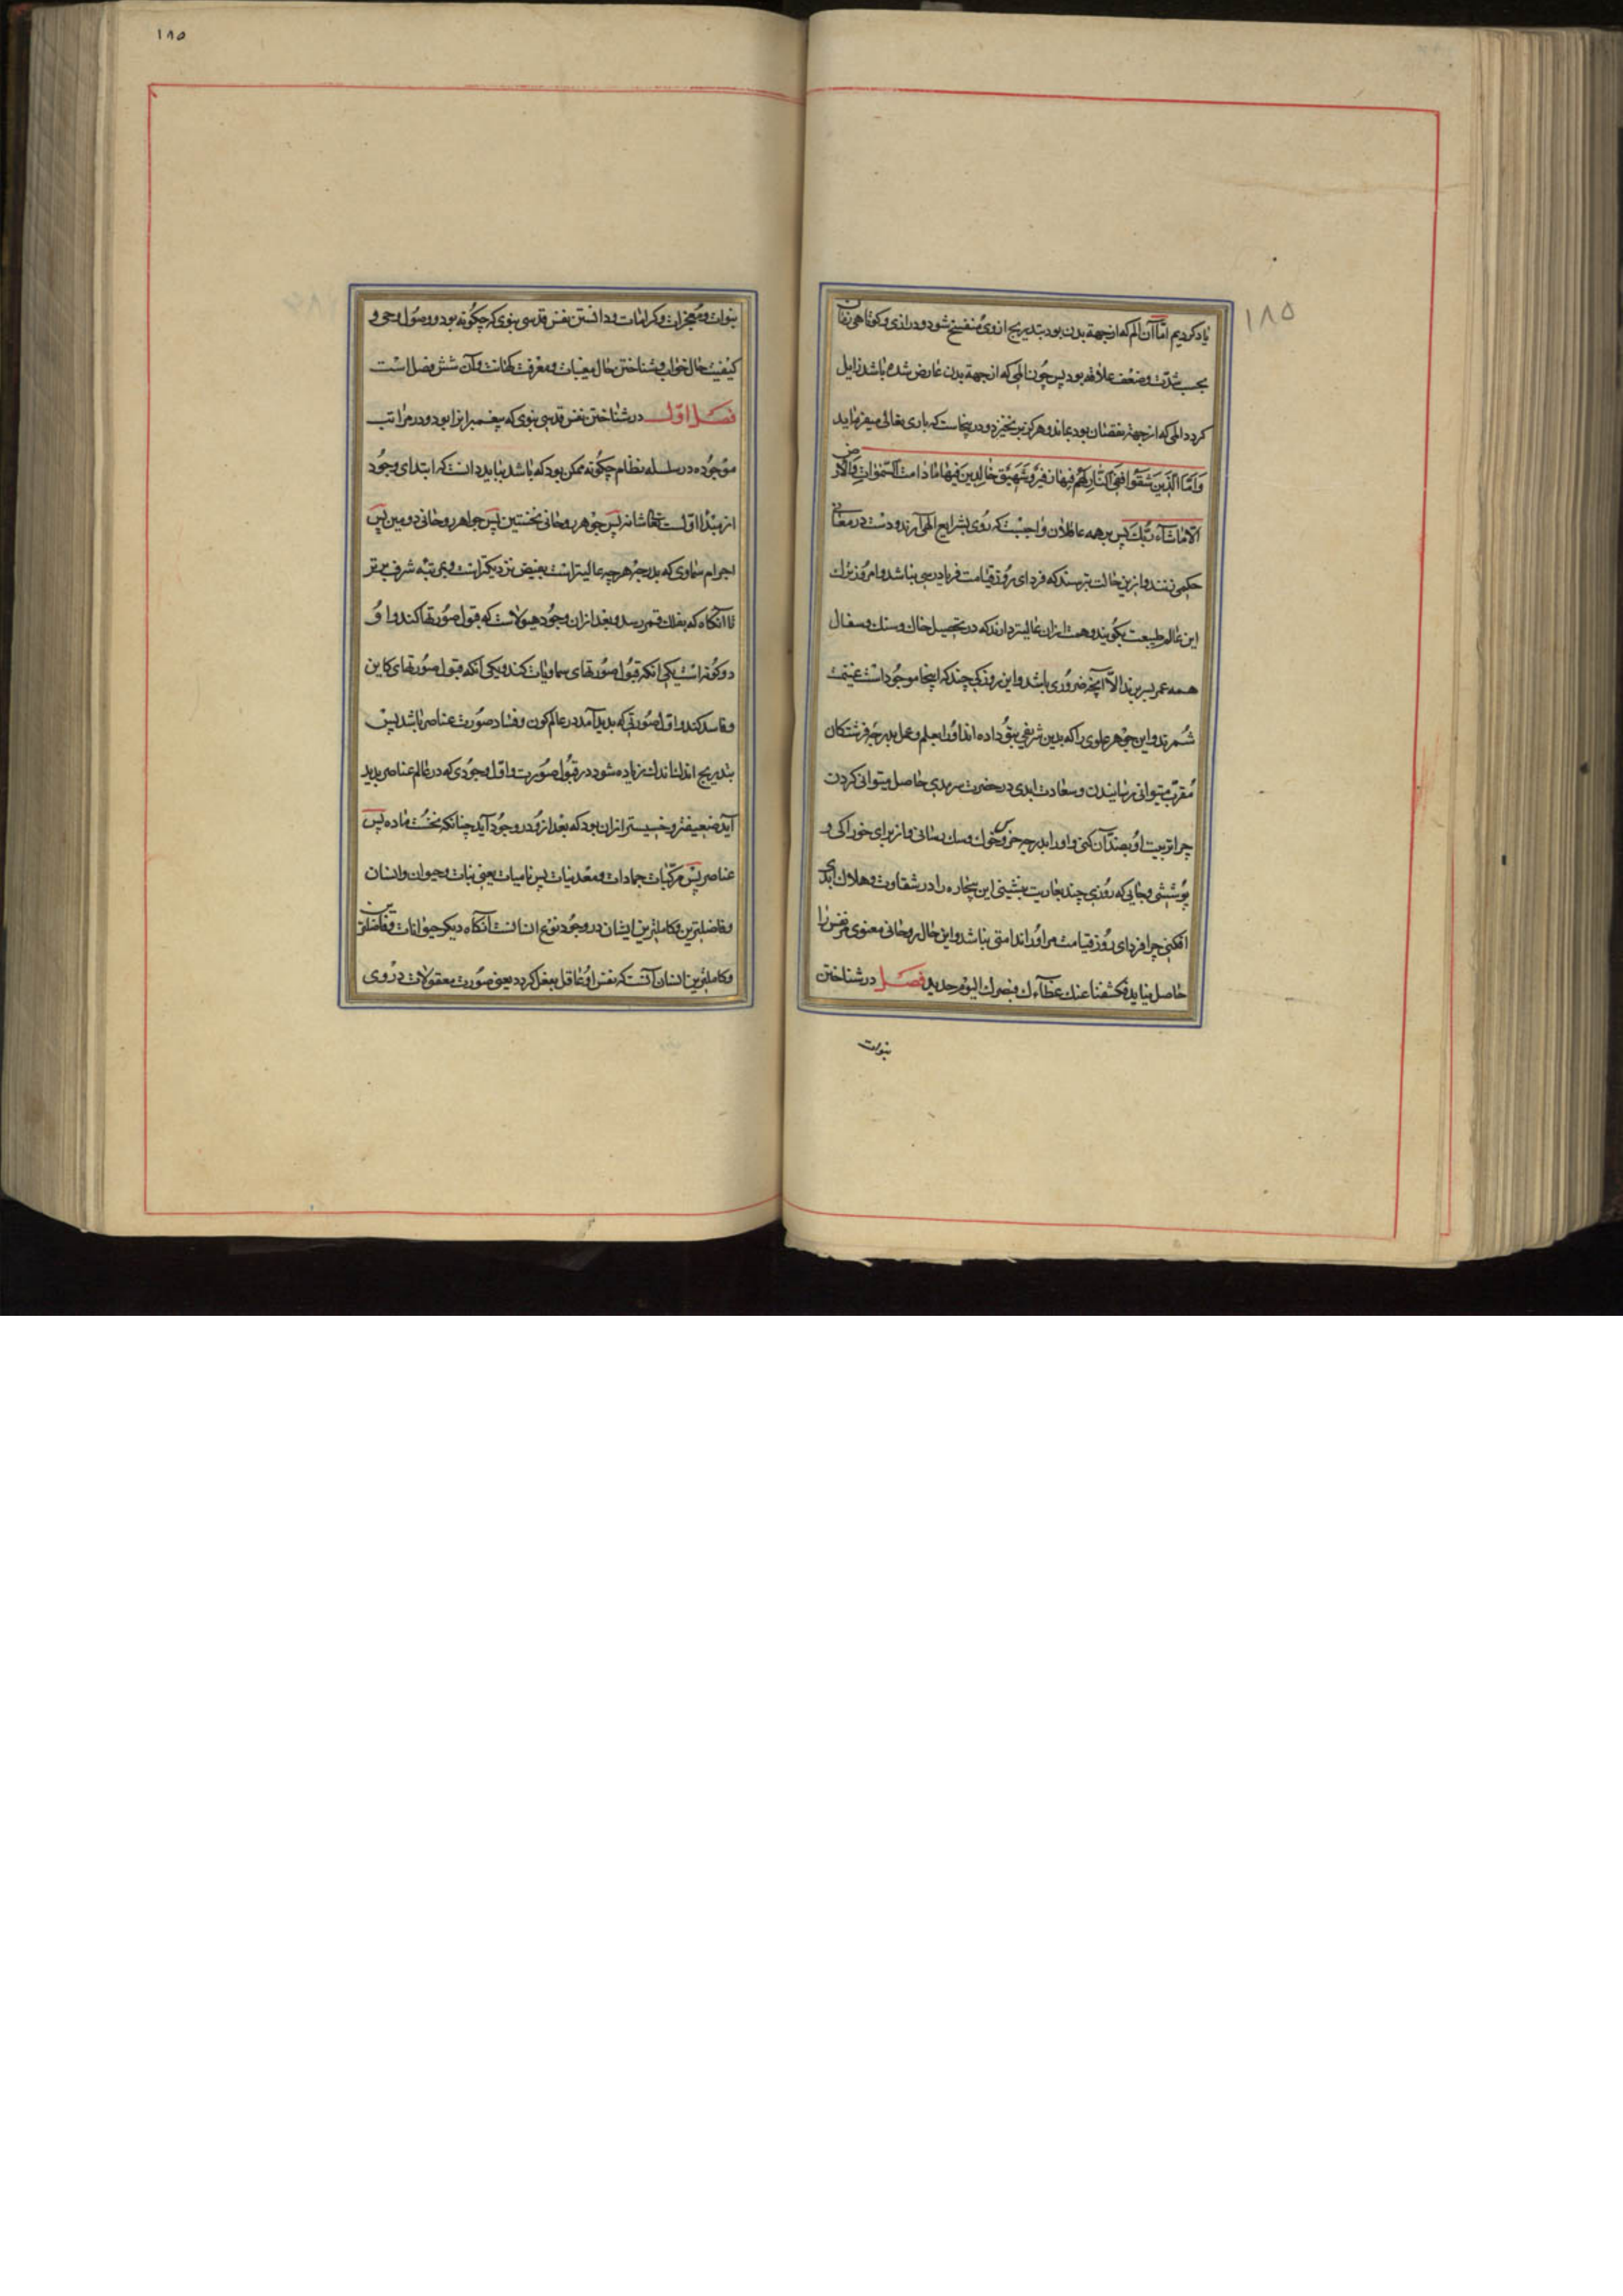 ۱۸۵
یاد کردیم امّا آن الم که از جهة بدن بود بتدریج از وی منفسخ شود و درازی و کوتاهی زمان
بحسب شدّت و ضعف علاقه بود پس چون المی که از جهة بدن عارض شده باشد زایل
کردد المی که از جهة نقصان بود بماند و هرکز برنخیزد و درینجاست که باری تعالی میفرماید
وَاَمَّا الَّذینَ شَقُوا فَفِی النّارِ لَهُمْ فیها زَفیرٌ وَشَهیقٌ خالِدینَ فیها ما دامَت السَّمٰواتِ وَالاَرْض
الّا ماشآءَ رَبُّكَ پس بر همه عاقلان واجبست که روی بشرایع الهی آرند و دست در معانی
حکمی زنند و ازین حالت بترسند که فردای روز قیامت فریادرسی نباشد و امروز ترك
این عالم طبیعت بکویند و همت ازان عالیتر دارند که در تحصیل خاك و سنك و سفال
همه عمر بسر برند الّا آنچه ضروری باشد و این روزکی چند که اینجا موجود است غنیمت
شمرند و این جوهر علوی را که بدین شریفی بتو داده اند او را بعلم و عمل بدرجۀ فرشتکان
مقرّب میتوانی رسانیدن و سعادت ابدی در حضرت سرمدی حاصل میتوانی کردن
چرا تربیت او بضد آن کنی و او را بدرجۀ خرس و خوك و سك رسانی و از برای خوراکی و
پوششی و جایی که روزی چند بعاریت بنشینی این بیچاره را در شقاوت و هلاك ابدی
افکنی چرا فردای روز قیامت مر او را ندامتی نباشد و این حال روحانی معنوی مر نفس را
حاصل نیاید فکشفنا عنك غطآءك فبصرك الیوم حدید فصل در شناختن
نبوات
۱۸۵
نبوات و معجزات و کرامات و دانستن نفس قدسی نبوی که چکونه بود و وصول وحی و
کیفیت حال خواب و شناختن حال مغیبات و معرفت کهانت و آن شش فصل است
فصل اوّل در شناختن نفس قدسی نبوی که پیغمبرانرا بود و در مراتب
موجوده در سلسله نظام چکونه ممکن بود که باشد بباید دانست که ابتدای وجود
از مبدا اوّلست تعالی شانه پس جوهر روحانی نخستین پس جواهر روحانی دومین پس
اجرام سماوی که بدرجۀ هرچه عالیتر است بفیض نزدیکتر است و بمرتبۀ شرف برتر
تا آنکاه که بفلك قمر رسد و بعد ازان وجود هیولاست که قبول صورتها کند و او
دو کونه است یکی آنکه قبول صورتهای سماویات کند و یکی آنکه قبول صورتهای کاین
و فاسد کند و اوّل صورتی که پدید آمد در عالم کون و فساد صورت عناصر باشد پس
بتدریج اندك اندك زیاده شود در قبول صورت و اوّل وجودی که در عالم عناصر پدید
آید ضعیفتر و خسیستر ازان بود که بعد از و در وجود آید چنانکه نخست ماده پس
عناصر پس مرکّبات جمادات و معدنیات پس نامیات یعنی نبات و حیوان و انسان
و فاضلترین و کاملترین ایشان در وجود نوع انسانست آنکاه دیکر حیوانات و فاضلترین
و کاملترین انسان آنست که نفس او عاقل بفعل کردد یعنی صورت معقولات در وی